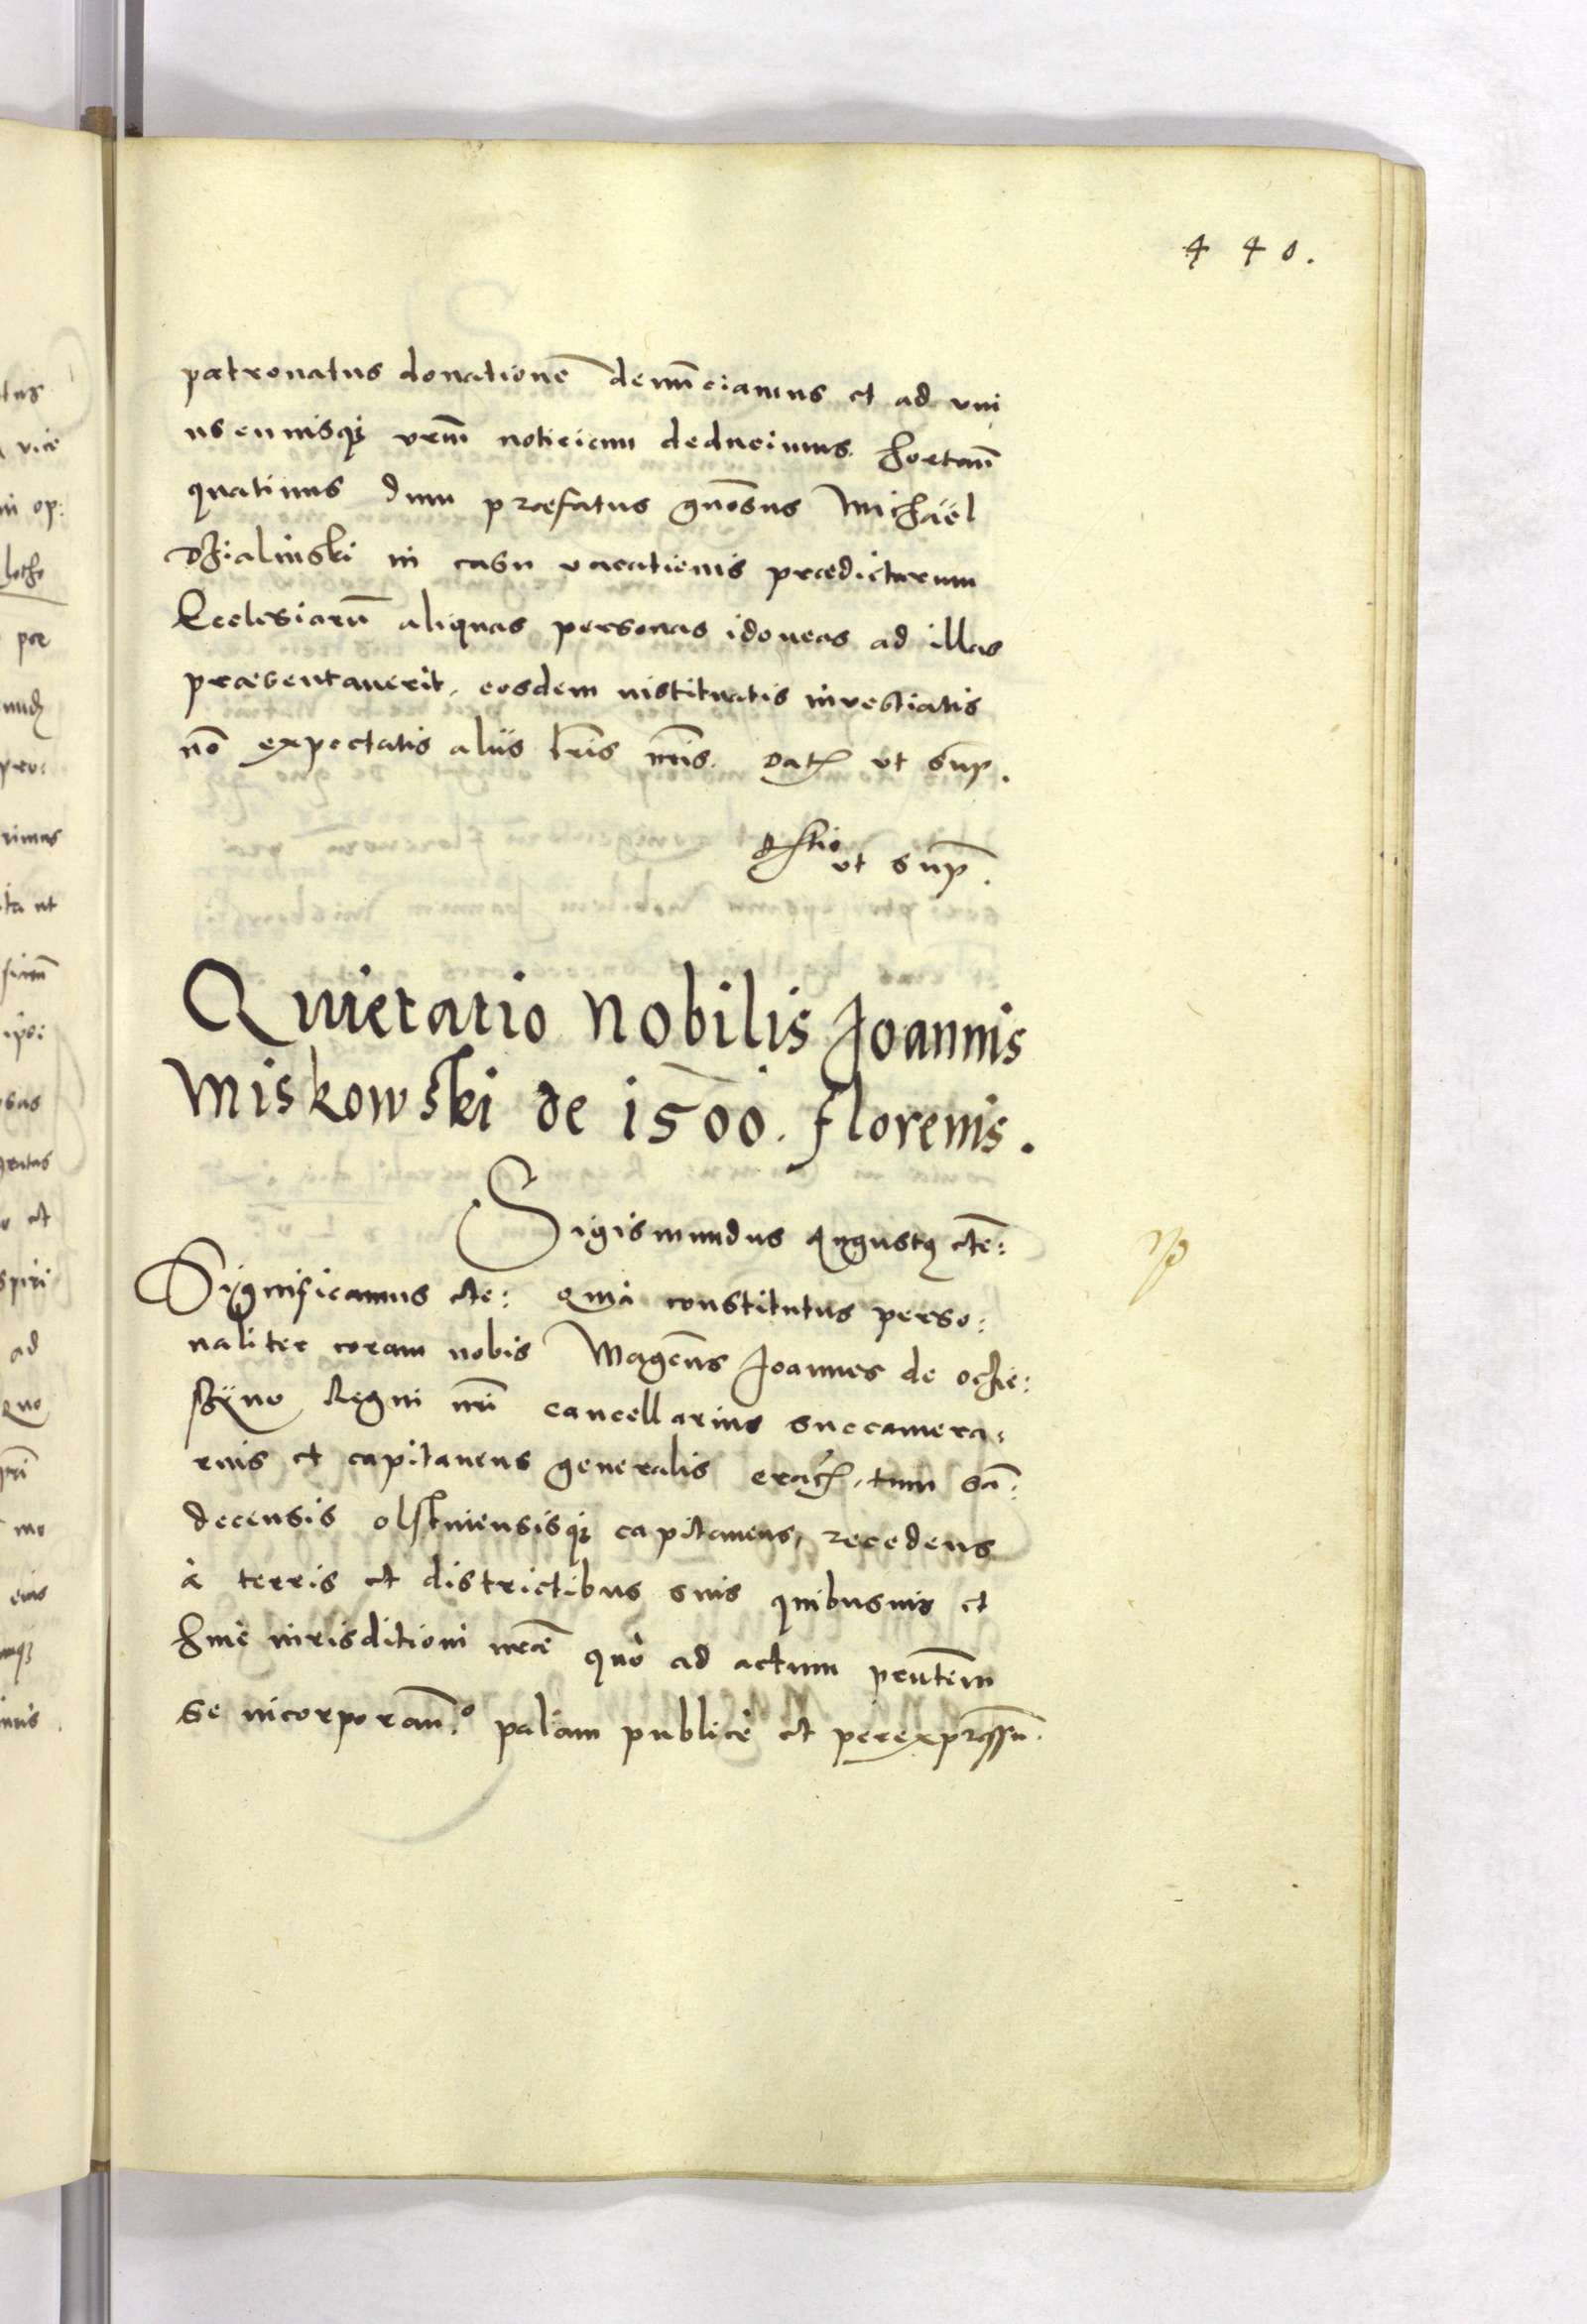 440.
patronatus donationē denūciamus et ad vni
uscuiusqȝ vrm̄ noticiam deducimus. hortan̄
quatinus dum præfatus gnōsus Michaël
Dzialinski in casu vacationis prædictarum
Ecclesiarū aliquas personas idoneas ad illas
præsentauerit, eosdem instituatis inuestiatis
nō expectatis aliis lr̄is nr̄is. Dat̄ ut sup̄.
ut sup̄.
Quietatio Nobilis Joannis
Miskowski de 1500. florenis.
Sigismundus Augustꝰ etc̄:
Significamus etc: Quia constitutus perso:
naliter coram nobis Magc̄us Joannes de Oczie:
szyno Regni nr̄i cancellarius succamera:
rius et capitaneus generalis crac̄. tum Sā:
decensis olstinensisqȝ capitaneus, recedens
à terris et districtibus suis quibusuis et
huic iurisditioni nr̄æ quò ad actum pn̄tem
se incorporan̄. palam publicè et per expressū.